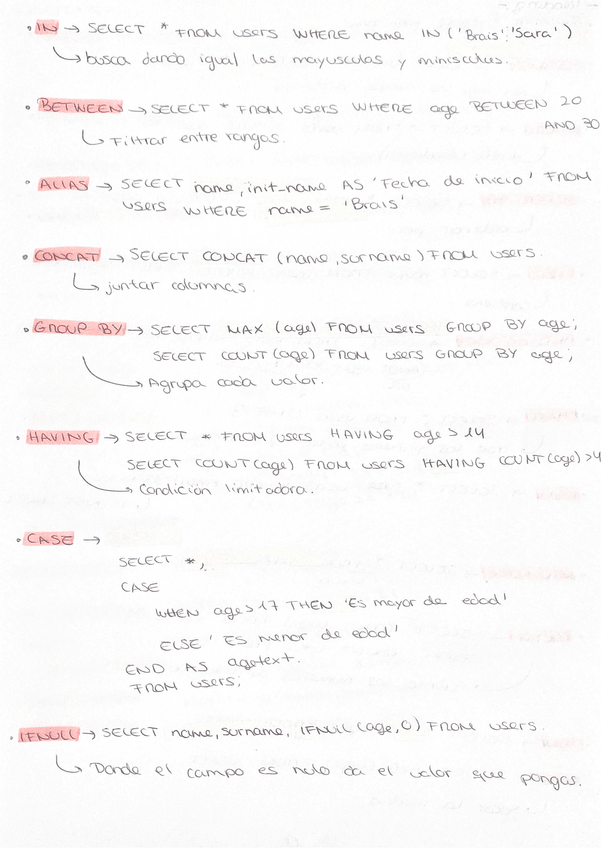 • IN → SELECT * FROM users WHERE name IN ('Brais' 'Sara')
↳ busca dando igual las mayusculas y minisculus.
• BETWEEN → SELECT * FROM users WHERE age BETWEEN 20
AND 30
↳ Filtrar entre rangos.
• ALIAS → SELECT name, init_name AS 'Fecha de inicio' FROM
users WHERE name = 'Brais'
• CONCAT → SELECT CONCAT (name, surname) FROM users.
↳ juntar columnas.
• GROUP BY → SELECT MAX (age) FROM users GROUP BY age;
SELECT COUNT (age) FROM users GROUP BY age;
↳ Agrupa cada valor.
• HAVING → SELECT * FROM users HAVING age > 14
SELECT COUNT (age) FROM users HAVING COUNT (age) > 4
↳ Condición limitadora.
• CASE →
SELECT *,
CASE
WHEN age > 17 THEN 'Es mayor de edad'
ELSE 'ES menor de edad'
END AS agetext.
FROM users;
• IFNULL → SELECT name, surname, IFNULL (age, 0) FROM users.
↳ Donde el campo es nulo da el valor que pongas.